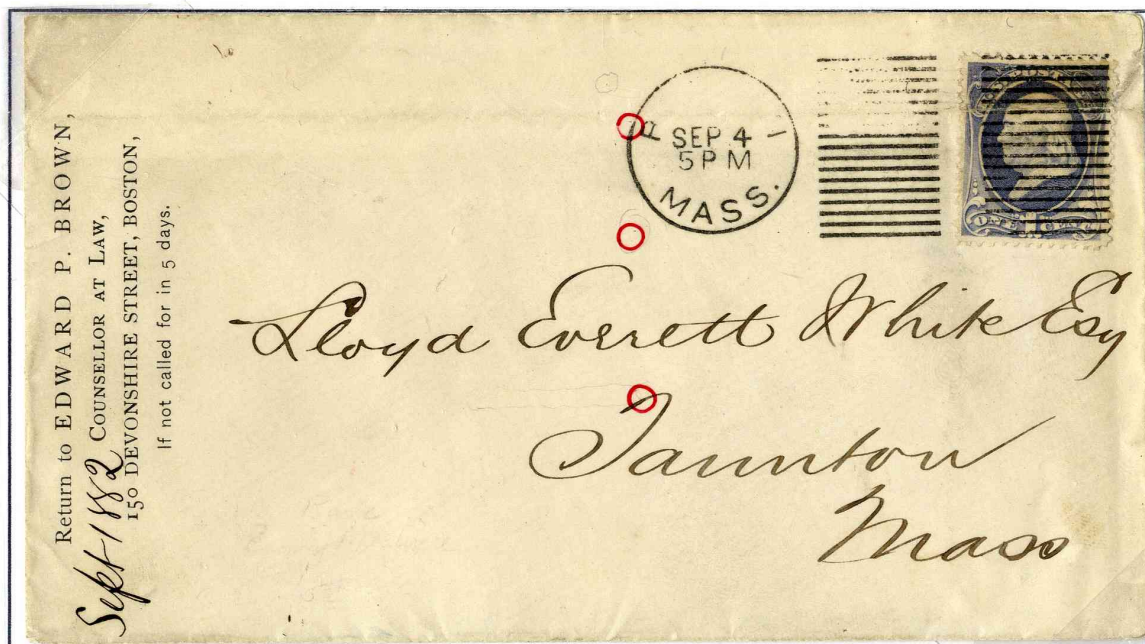 Return to EDWARD P. BROWN,
COUNSELLOR AT LAW,
150 DEVONSHIRE STREET, BOSTON,
If not called for in 5 days.
Sept 1882
SEP 4
5 PM
MASS.
ONE CENT
Lloyd Everett White Esq
Taunton
Mass